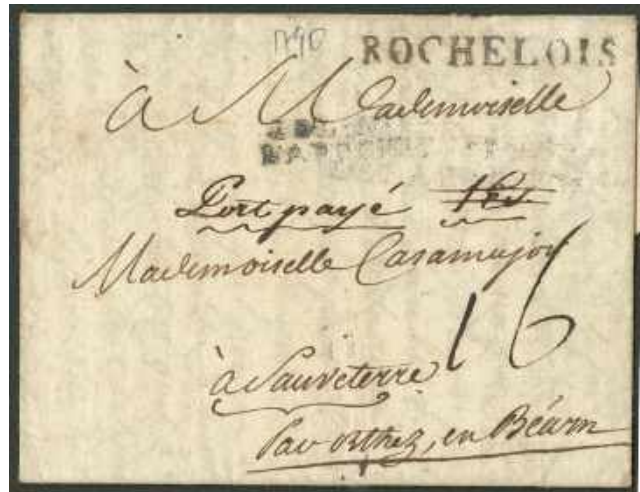 1790
ROCHELOIS
à Mademoiselle
Port payé
Mademoiselle Casamajor
16
à Sauveterre
Par orthez, en Béarn